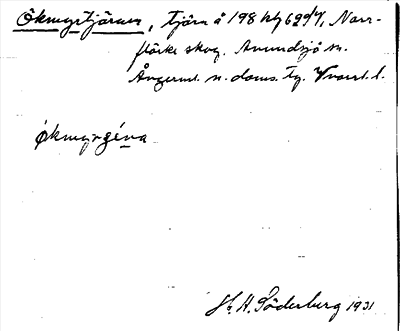 Ökmyrtjärnen, tjärn å 198 kvf 62 d 4, Norr-
flärke skog. Anundsjö sn.
Ångerml. n. doms. tg. V norrl. l.
økmyrģéṇa
H. A. Söderberg 1931